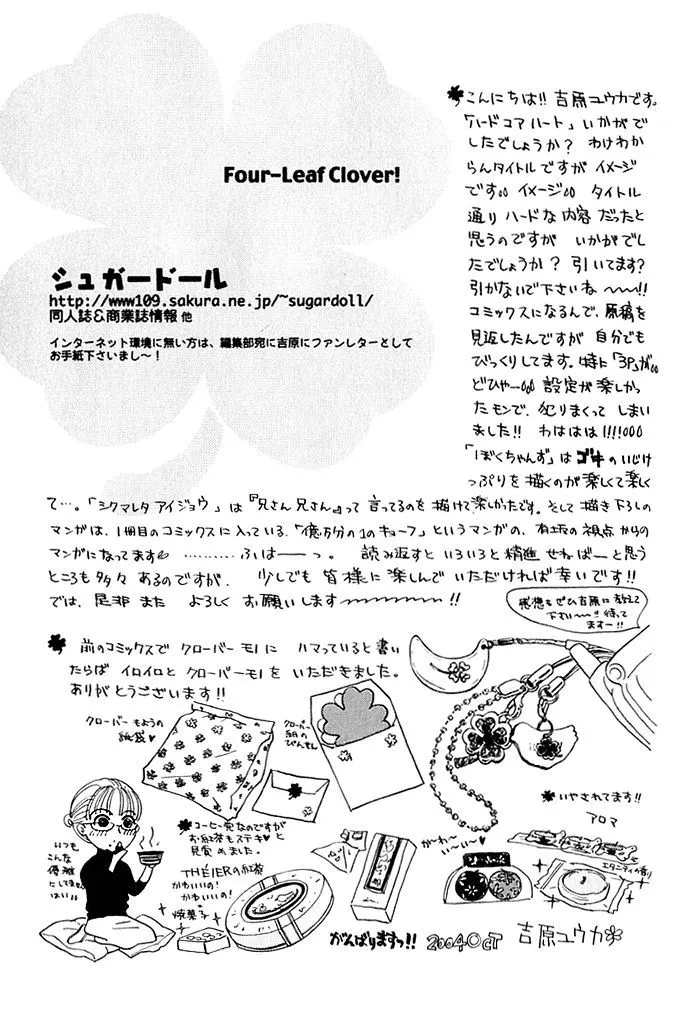 Four-Leaf Clover!
シュガードール
http://www109.sakura.ne.jp/~sugardoll/
同人誌&商業誌情報 他
インターネット環境に無い方は、編集部宛に吉原にファンレターとして
お手紙下さいまし～!
こんにちは!! 吉原ユウカです。
「ハードコアハート」いかがで
したでしょうか? わけわか
らんタイトルですが イメージ
です。。イメージ。。 タイトル
通り ハードな内容 だったと
思うのですが いかがでし
たでしょうか? 引いてます?
引かないで下さいね ～～!!
コミックスになるんで、原稿を
見返したんですが 自分でも
びっくりしてます。時に「3P」が。。
どひゃー。。。 設定が楽しかっ
たモンで、犯りまくって しまい
ました!! わははは!!!!。。。
「ぼくちゃんず」は ゴキのいじけ
っぷりを描くのが楽しくて楽しく
て…。「シクマレタ アイジョウ」は『兄さん兄さん』って 言ってるのを 描けて楽しかったです。そして 描き下ろしの
マンガは、1冊目のコミックスに入っている、「億万分の1のキューブ」というマンガの、有坂の視点からの
マンガになってます ………ふぃはーーっ。 読み返すと いろいろと 精進せねばーと思う
ところも多々 あるのですが、 少しでも 皆様に楽しんで いただければ 幸いです!!
では、是非 また よろしく お願いします～～～～!!
感想もぜひ吉原に教えて
下さい～!! 待って
ますー!!
前のコミックスで クローバーモノに ハマっていると書い
たらば イロイロと クローバーモノ を いただきました。
ありがとうございます!!
クローバーもようの
紙袋♥
クローバー
組の
びんせん
コーヒー党なのですが
お紅茶もステキ♥と
見覚めました。
THÉIERの紅茶
かわいいの!
かわいいの!
焼菓子
いつも
こんな
優雅
にしてませ
はい。。
がーわー
いーいー♥
いやされてます!!
アロマ
エタニティの香り
がんばりますっ!! 2004.OcT 吉原ユウカ